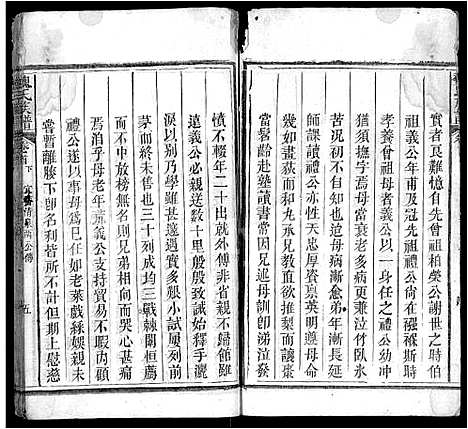 實者良難憶自先曾祖柏榮公謝世之時伯
祖義公年甫及冠先祖禮公尚在襁褓斯時
孝養曾祖母者義公以一身任之禮公幼冲
猶須撫字焉母當衰老多病更兼泣竹臥氷
苦況初不可當迨母病漸愈弟年漸長延
師課讀禮公亦性天忠厚資禀英明遵母命
凛兄規幾見教直欲推梨而讓棗
當髫齡赴塾讀書常因兄述母訓卽涕泣發
憤不輟年二十出就外傅非省親不歸館雖
遠義公必親送數十里般般告誡始釋手灑
淚以別乃學雖甚邃遇實多艱小試屢列前
茅而終未售也三十列成均三戰棘闈恒薦
而不中放榜無名則兄弟相向而哭心甚痛
焉洎乎母老年荒義公支持貿易不暇內顧
禮公遂以事母爲己任如老萊戲綵娛親未
嘗暫離膝下卽名利皆所不計但期上慰慈
魏氏族譜
卷首
下
公傳
五